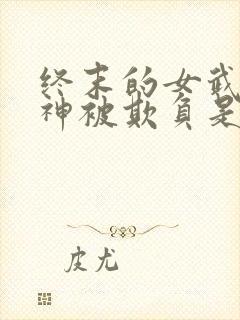 终末的女武
神被欺负是
皮尤